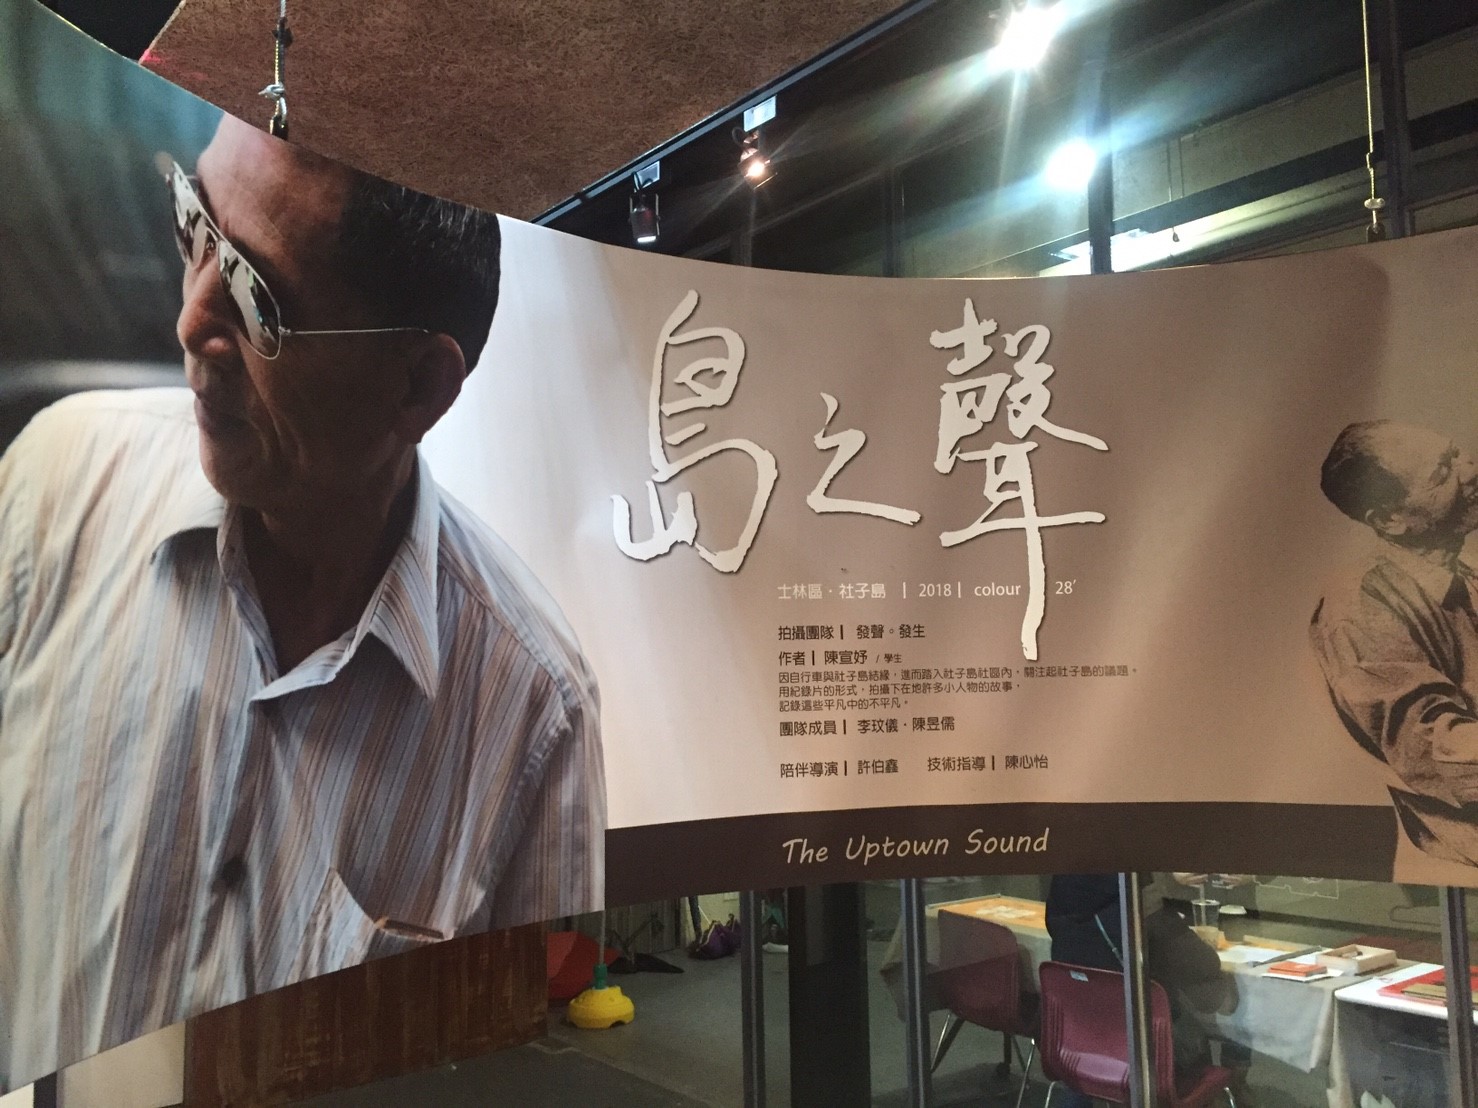 島之聲
士林區・社子島 | 2018 | colour 28'
拍攝團隊 | 發聲。發生
作者 | 陳宣妤 / 學生
因自行車與社子島結緣，進而踏入社子島社區內，關注起社子島的議題。
用紀錄片的形式，拍攝下在地許多小人物的故事，
記錄這些平凡中的不平凡。
團隊成員 | 李玟儀・陳昱儒
陪伴導演 | 許伯鑫 技術指導 | 陳心怡
The Uptown Sound